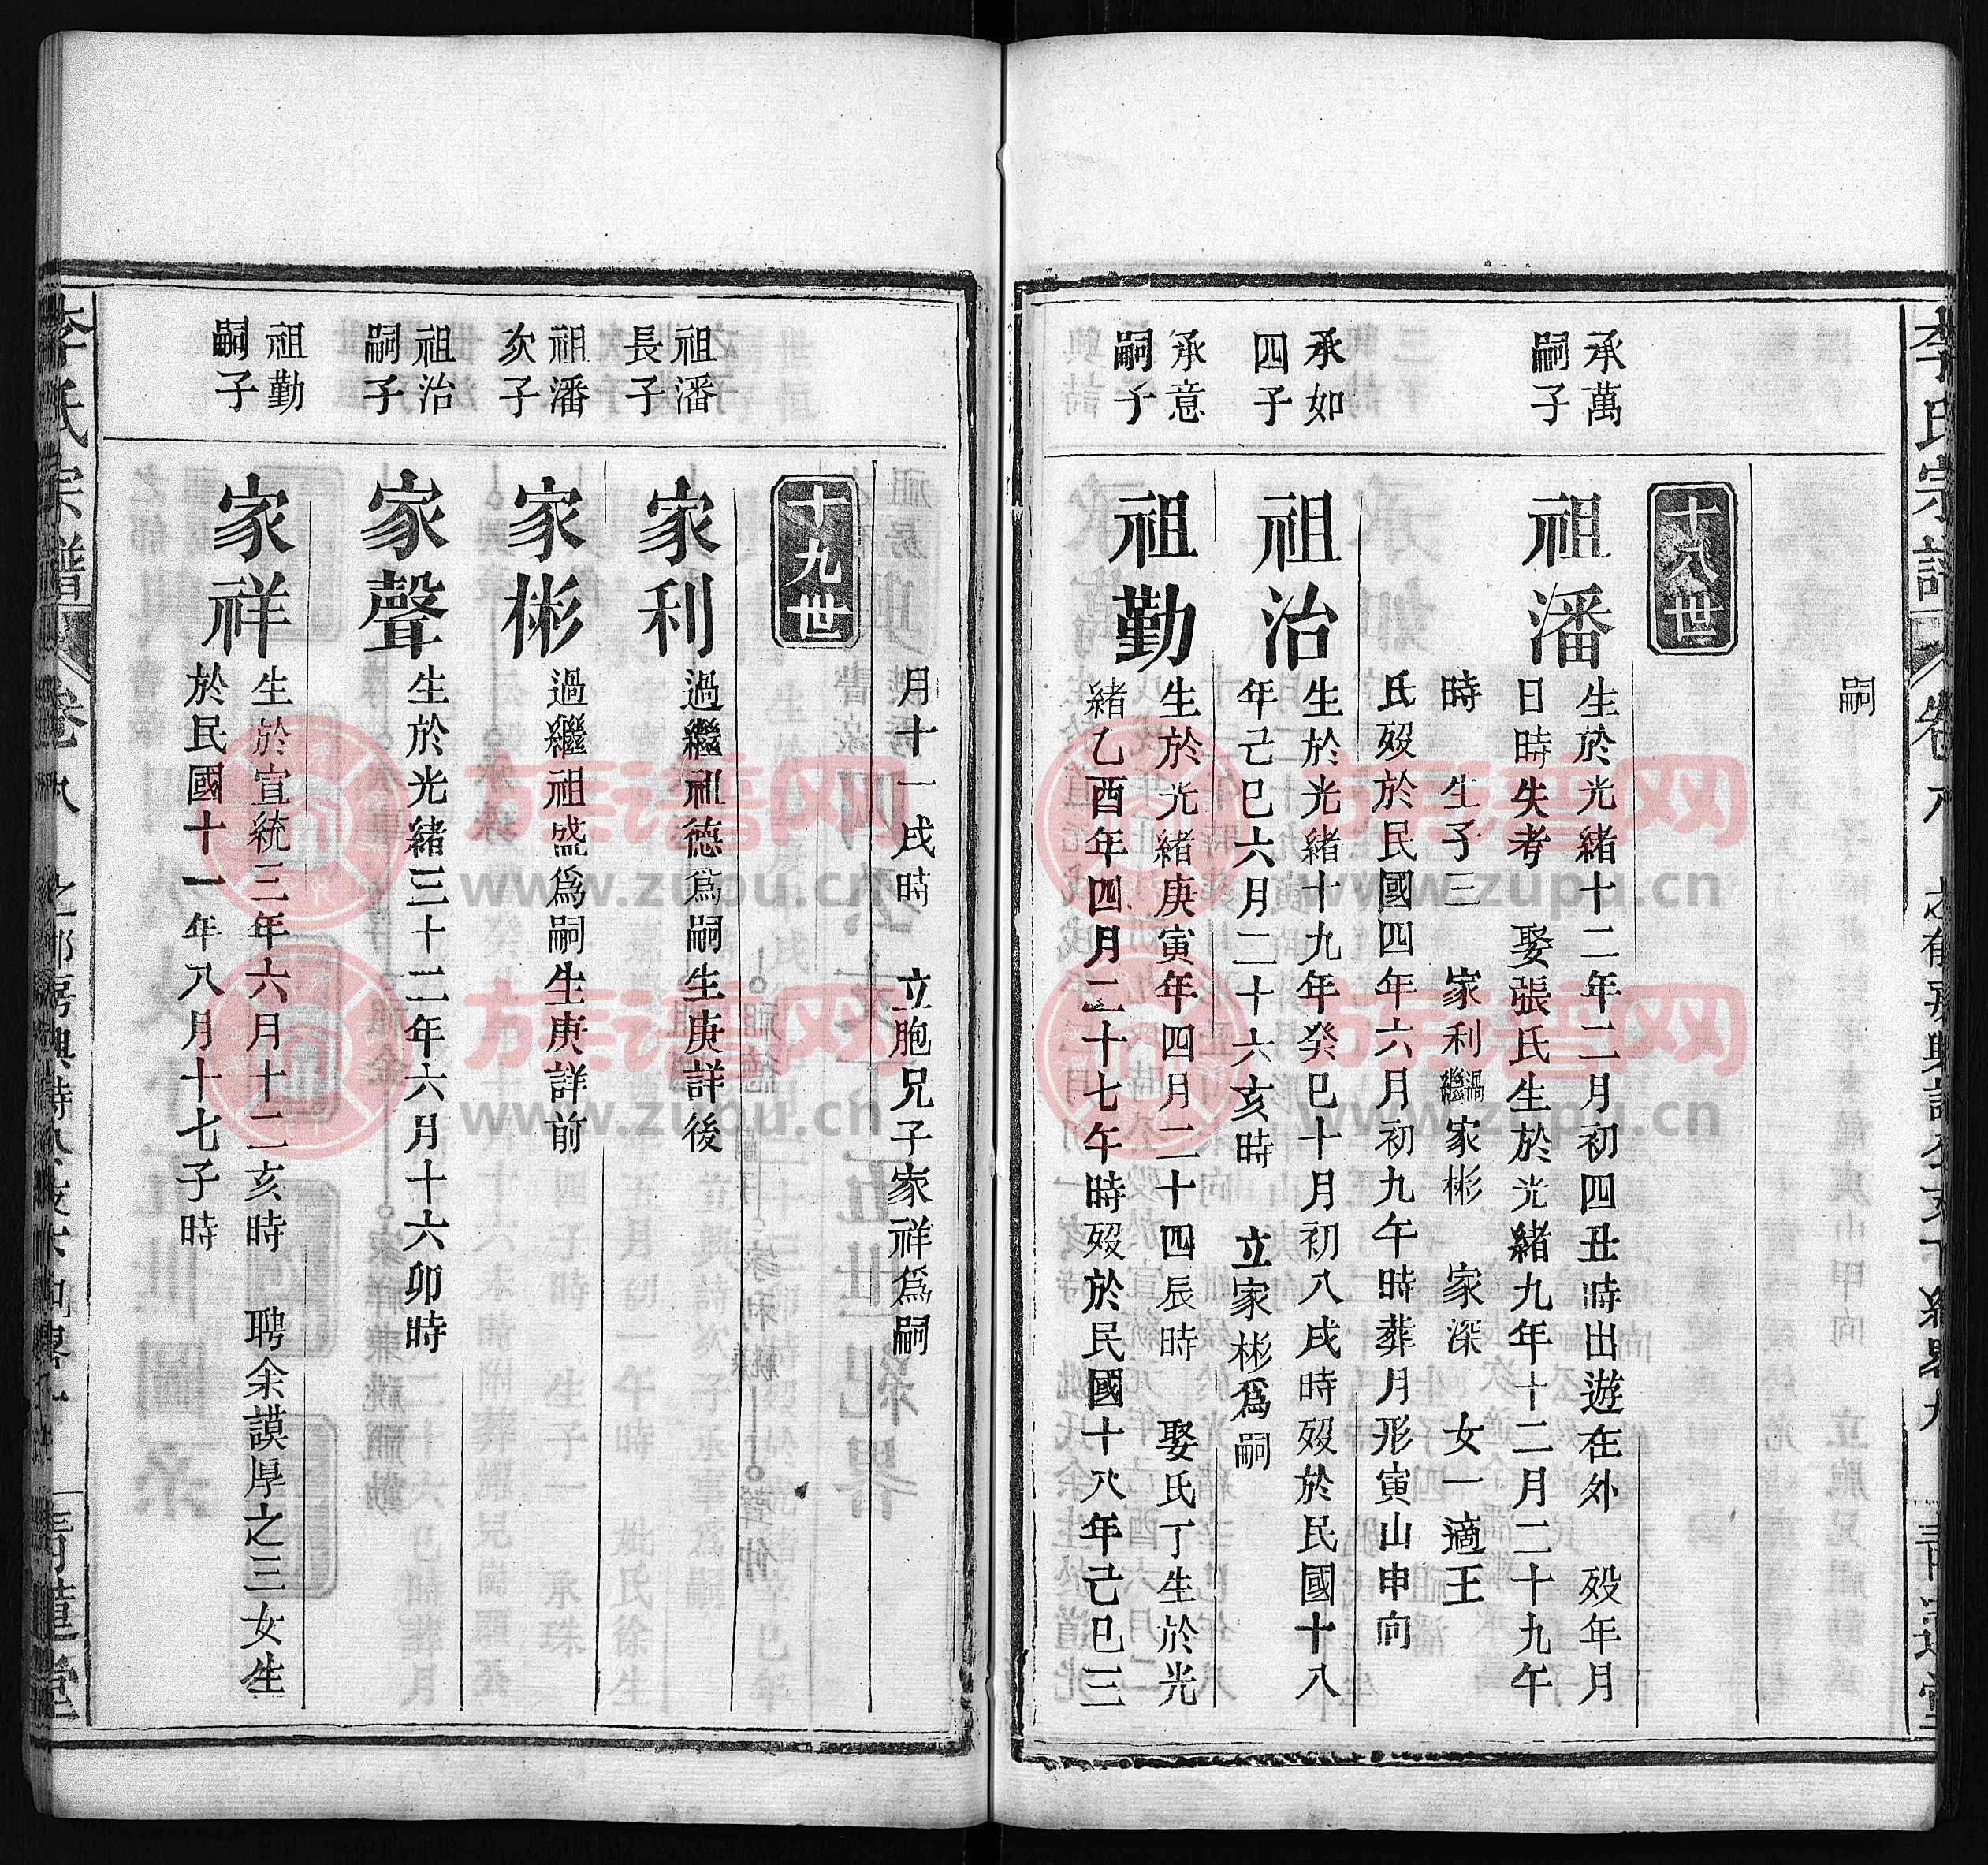 李氏宗譜
嗣
十八世
承萬
嗣子
祖潘
生於光緒十二年二月初四丑時出遊在外　歿年月
日時失考　娶張氏生於光緒九年十二月二十九午
時　生子三　家利過繼家彬　家深　女一適王
氏歿於民國四年六月初九午時葬月形寅山申向
承如
四子
祖治
生於光緒十九年癸巳十月初八戌時歿於民國十八
年己巳六月二十六亥時　立家彬爲嗣
承意
嗣子
祖勤
生於光緒庚寅年四月二十四辰時　娶氏丁生於光
緒乙酉年四月二十七午時歿於民國十八年己巳三
月十一戌時　立胞兄子家祥爲嗣
十九世
祖潘
長子
家利
過繼祖德爲嗣生庚詳後
祖潘
次子
家彬
過繼祖盛爲嗣生庚詳前
祖治
嗣子
家聲
生於光緒三十二年六月十六卯時
祖勤
嗣子
家祥
生於宣統三年六月十二亥時　聘余謨厚之三女生
於民國十一年八月十七子時
李氏宗譜
族谱网
www.zupu.cn
族谱网
www.zupu.cn
族谱网
www.zupu.cn
族谱网
www.zupu.cn